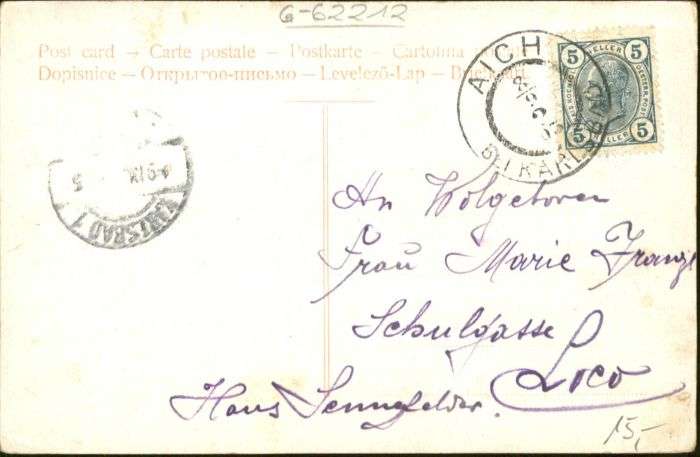 G-62212
Post card – Carte postale – Postkarte – Cartolina
Dopisnice – Открытое-письмо – Levelező-Lap –
5 HELLER 5
5 HELLER 5
AICH
BEI KARLSBAD
KARLSBAD 1
An Wolgeboren
Frau Marie Franzl
Schulgasse
Loco
Hans Sennefelder.
15,-